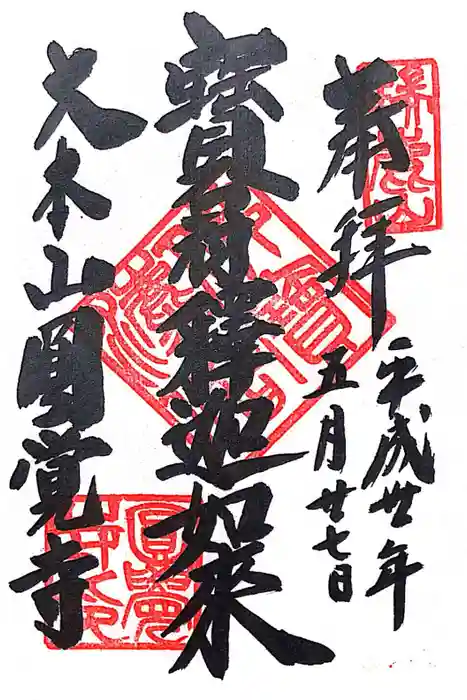 奉拝
平成卅年
五月廿七日
寳冠釋迦如来
大本山圓覚寺